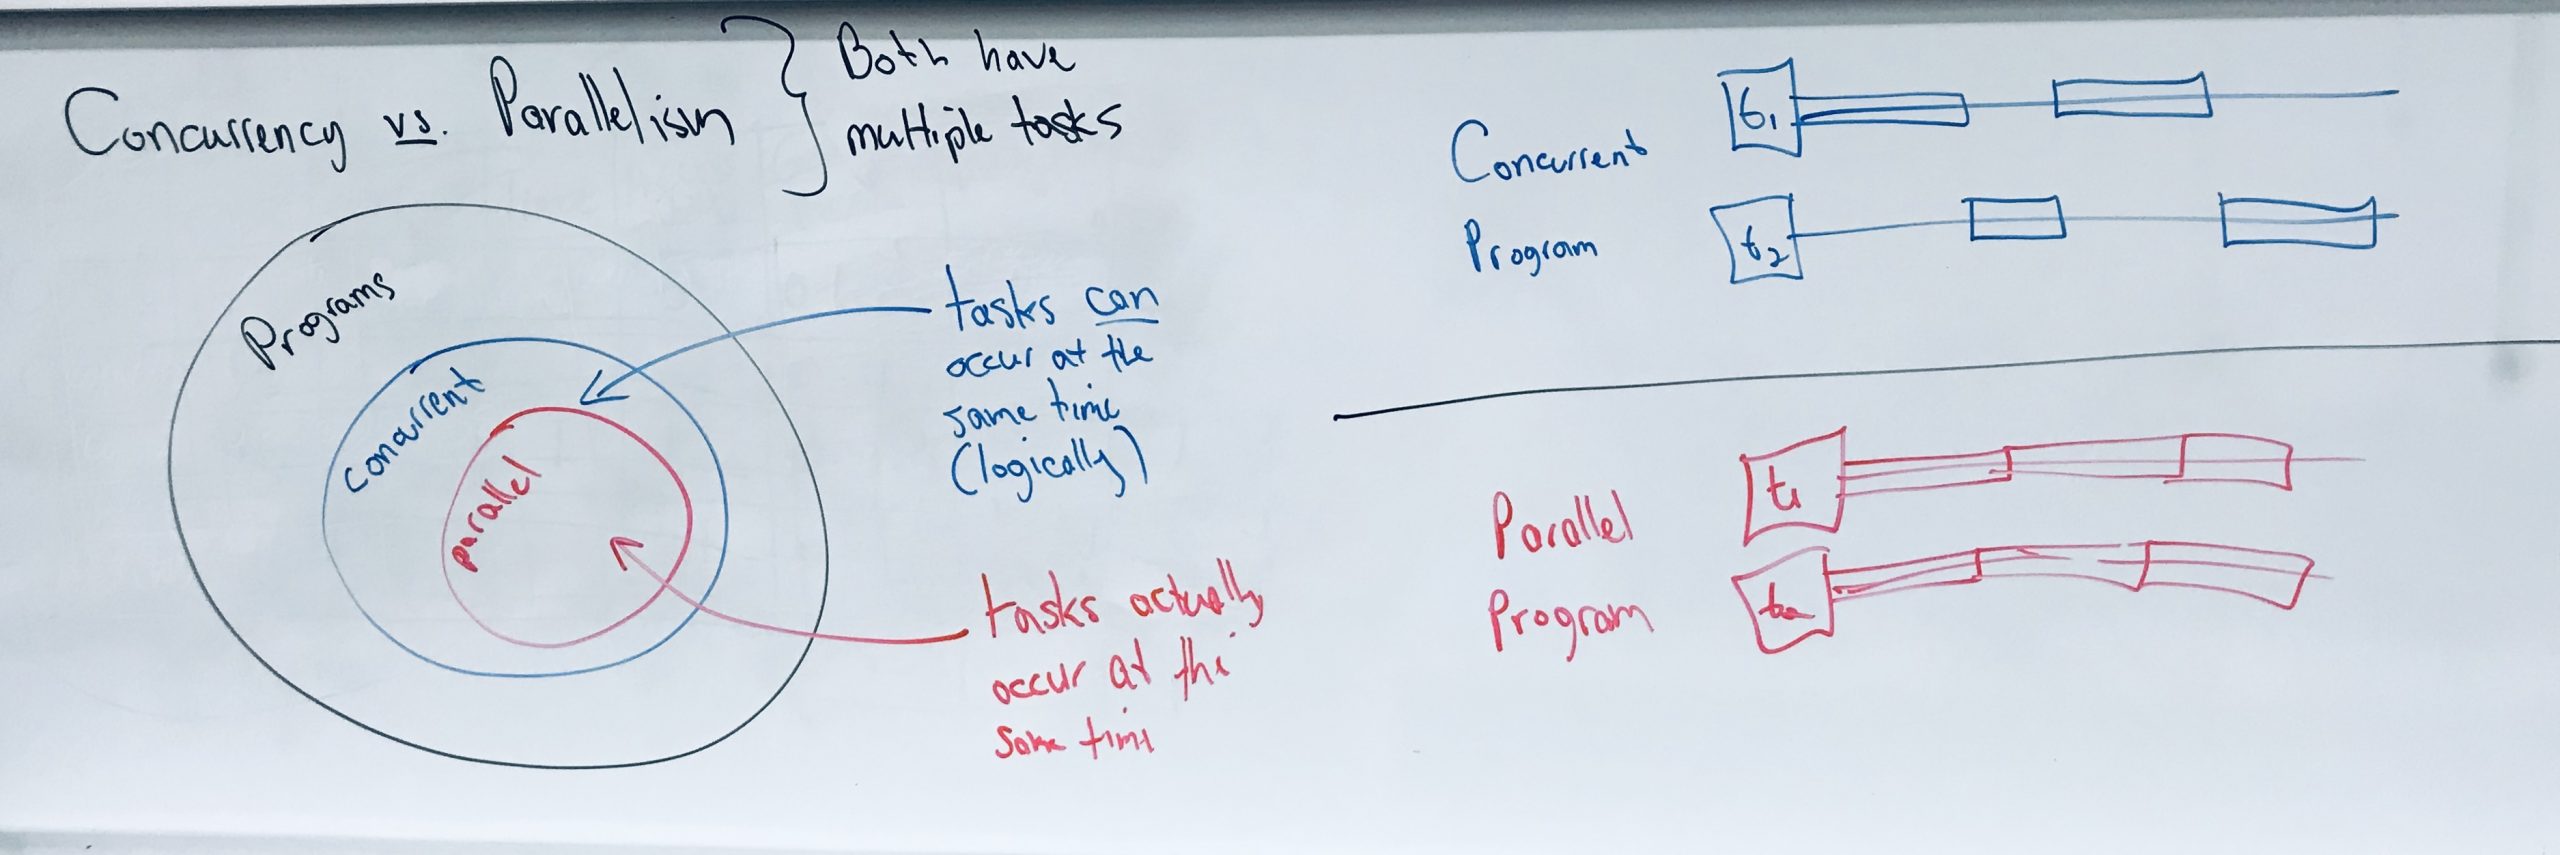 Concurrency vs. Parallelism
Both have
multiple tasks
Programs
concurrent
parallel
tasks can
occur at the
same time
(logically)
tasks actually
occur at the
same time
Concurrent
Program
t1
t2
Parallel
Program
t1
t2